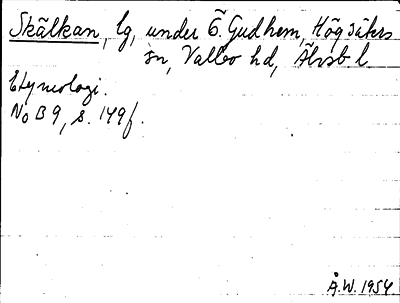 Skälkan, lg, under Ö. Gudhem, Högsäters
sn, Valbo hd, Älvsb l
Etymologi.
No B 9, s. 149f.
Å.W. 1954